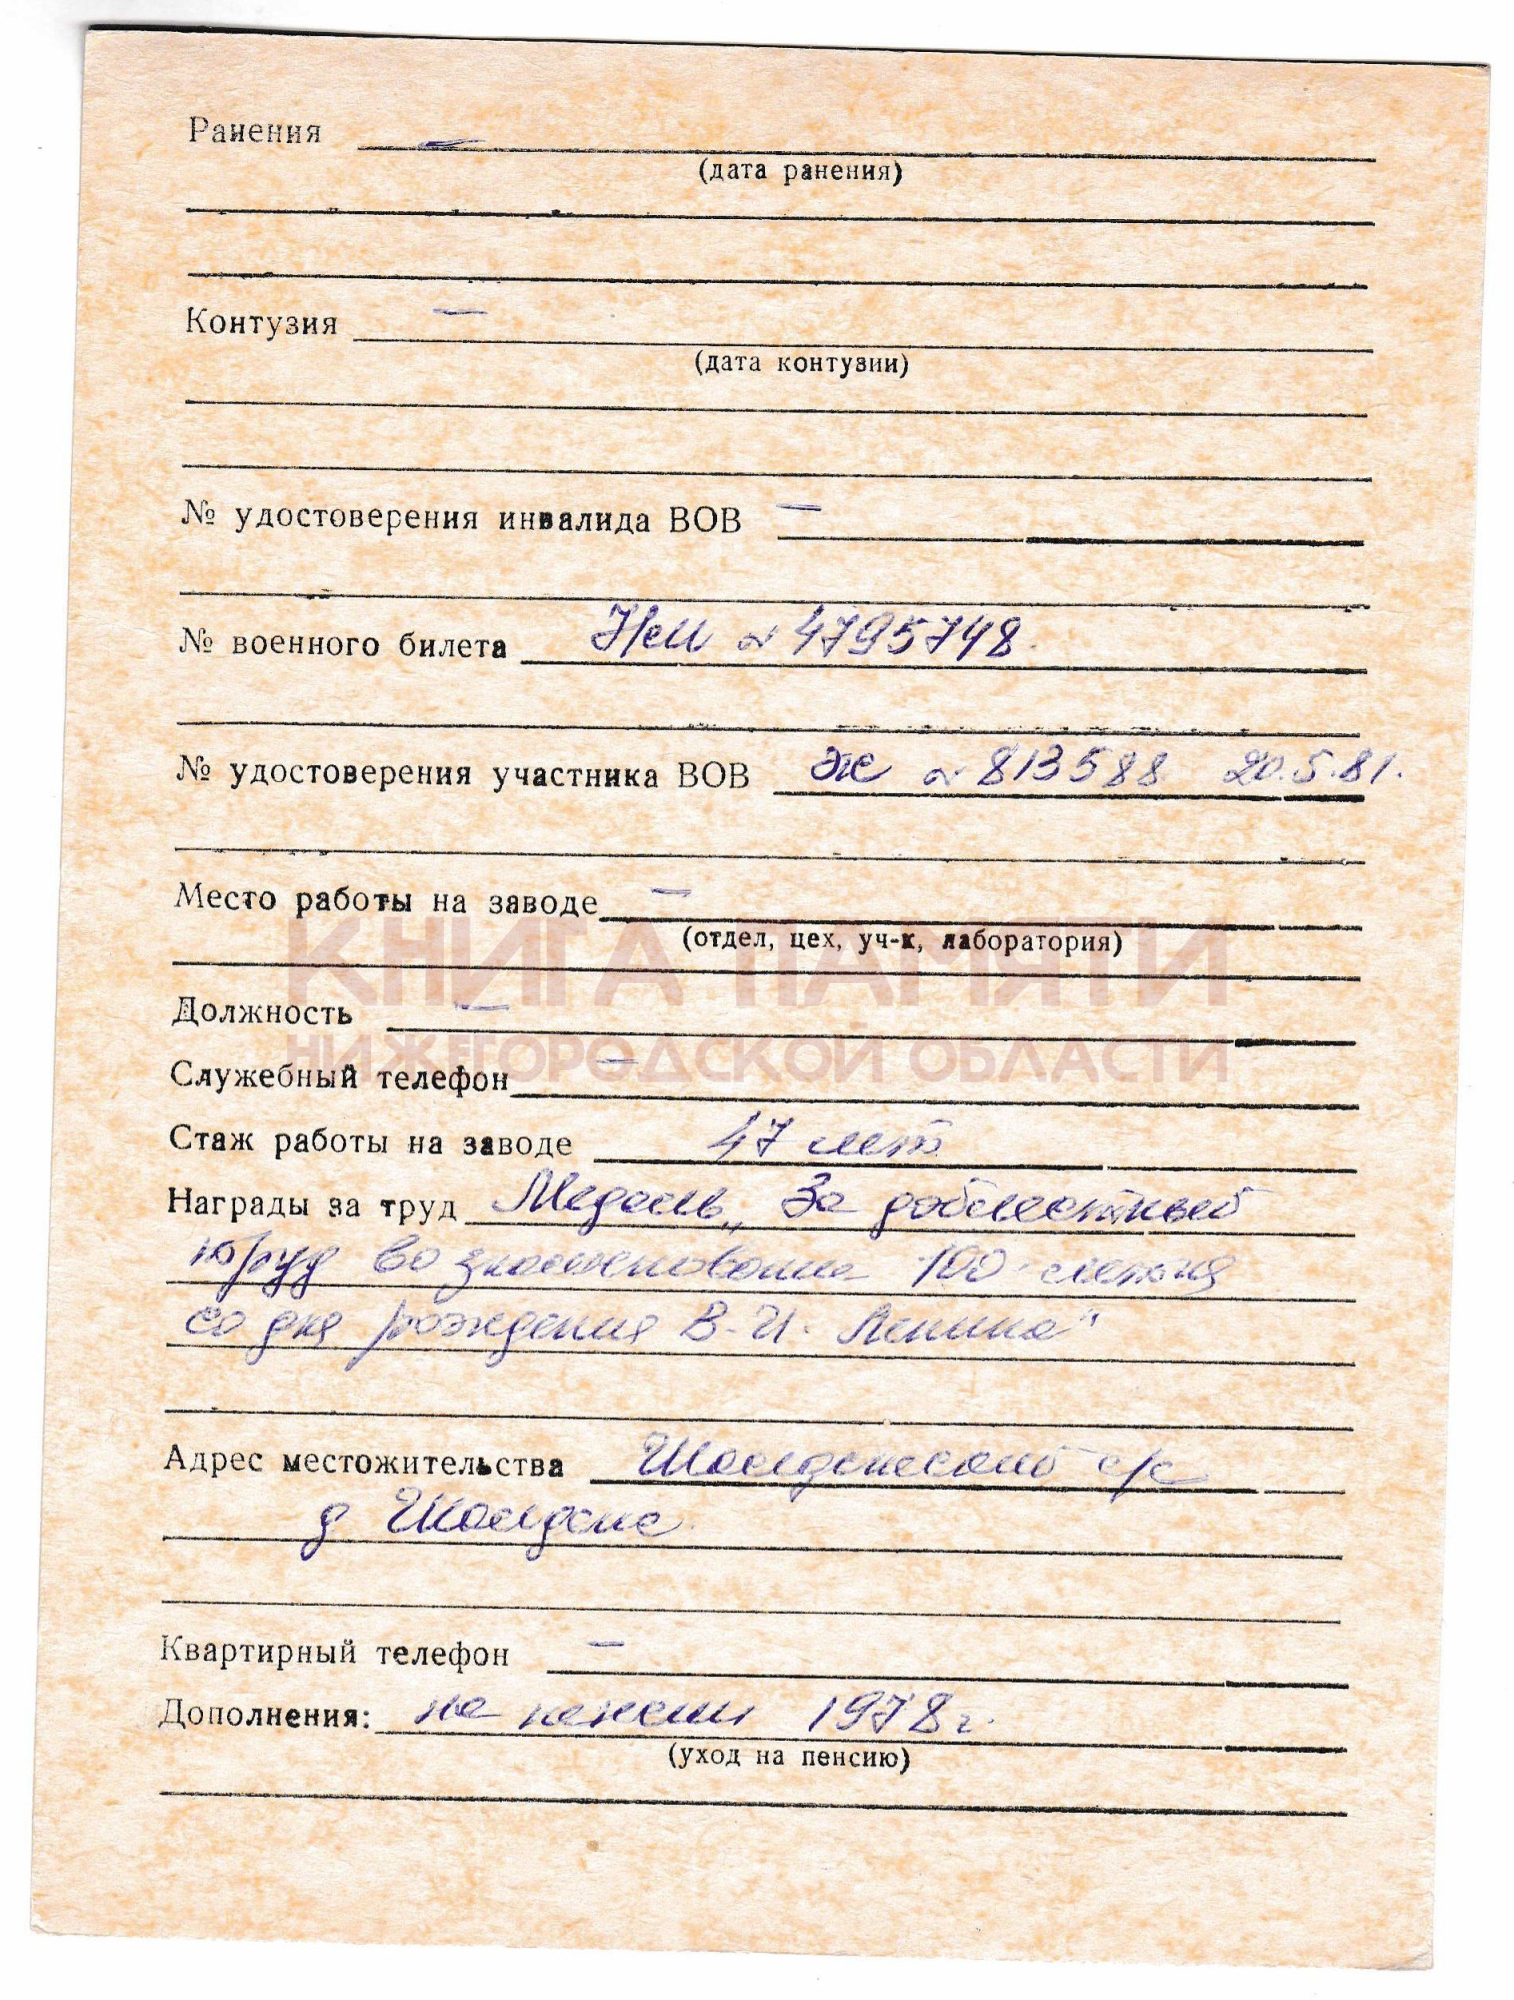 Ранения —
(дата ранения)
Контузия —
(дата контузии)
№ удостоверения инвалида ВОВ —
№ военного билета № 4795748.
№ удостоверения участника ВОВ Эк № 813588 20.5.81.
Место работы на заводе —
(отдел, цех, уч-к, лаборатория)
КНИГА ПАМЯТИ
Должность —
НИЖЕГОРОДСКОЙ ОБЛАСТИ
Служебный телефон —
Стаж работы на заводе 47 лет
Награды за труд Медаль „За доблестный
труд во знаменование 100-летия
со дня рождения В.И. Ленина"
Адрес местожительства с/с
д
Квартирный телефон —
Дополнения: на пенсии 1978 г.
(уход на пенсию)